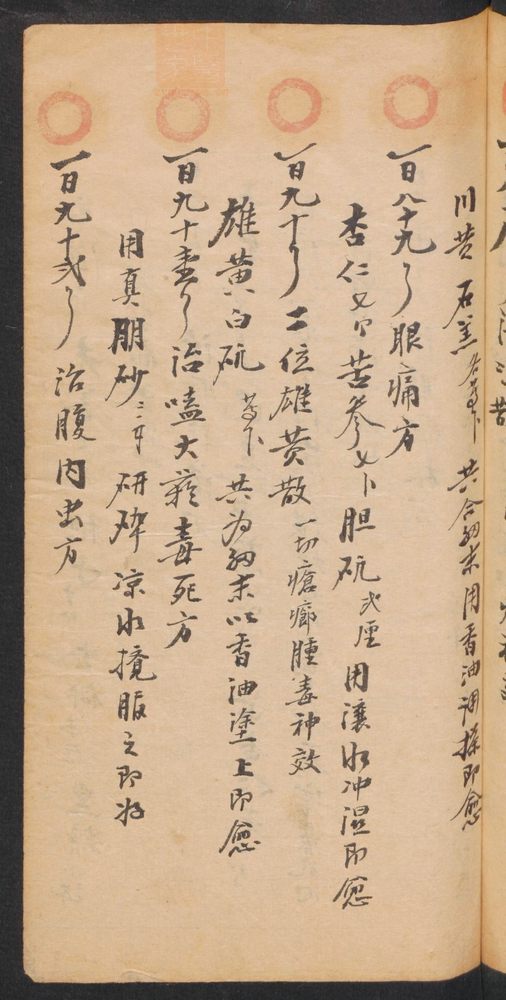 川黄 石羔 各等下 共合細末用香油调搽即愈
一百八十九 眼痛方
杏仁 苦参 胆矾弍厘 用滾水冲湿即愈
一百九十 二位雄黄散 一切瘡瘤腫毒神效
雄黄白矾 等下 共为細末以香油塗上即愈
一百九十壹 治嗑大菸毒死方
用真朋砂 研碎凉水攪服之即好
一百九十弍 治腹内虫方